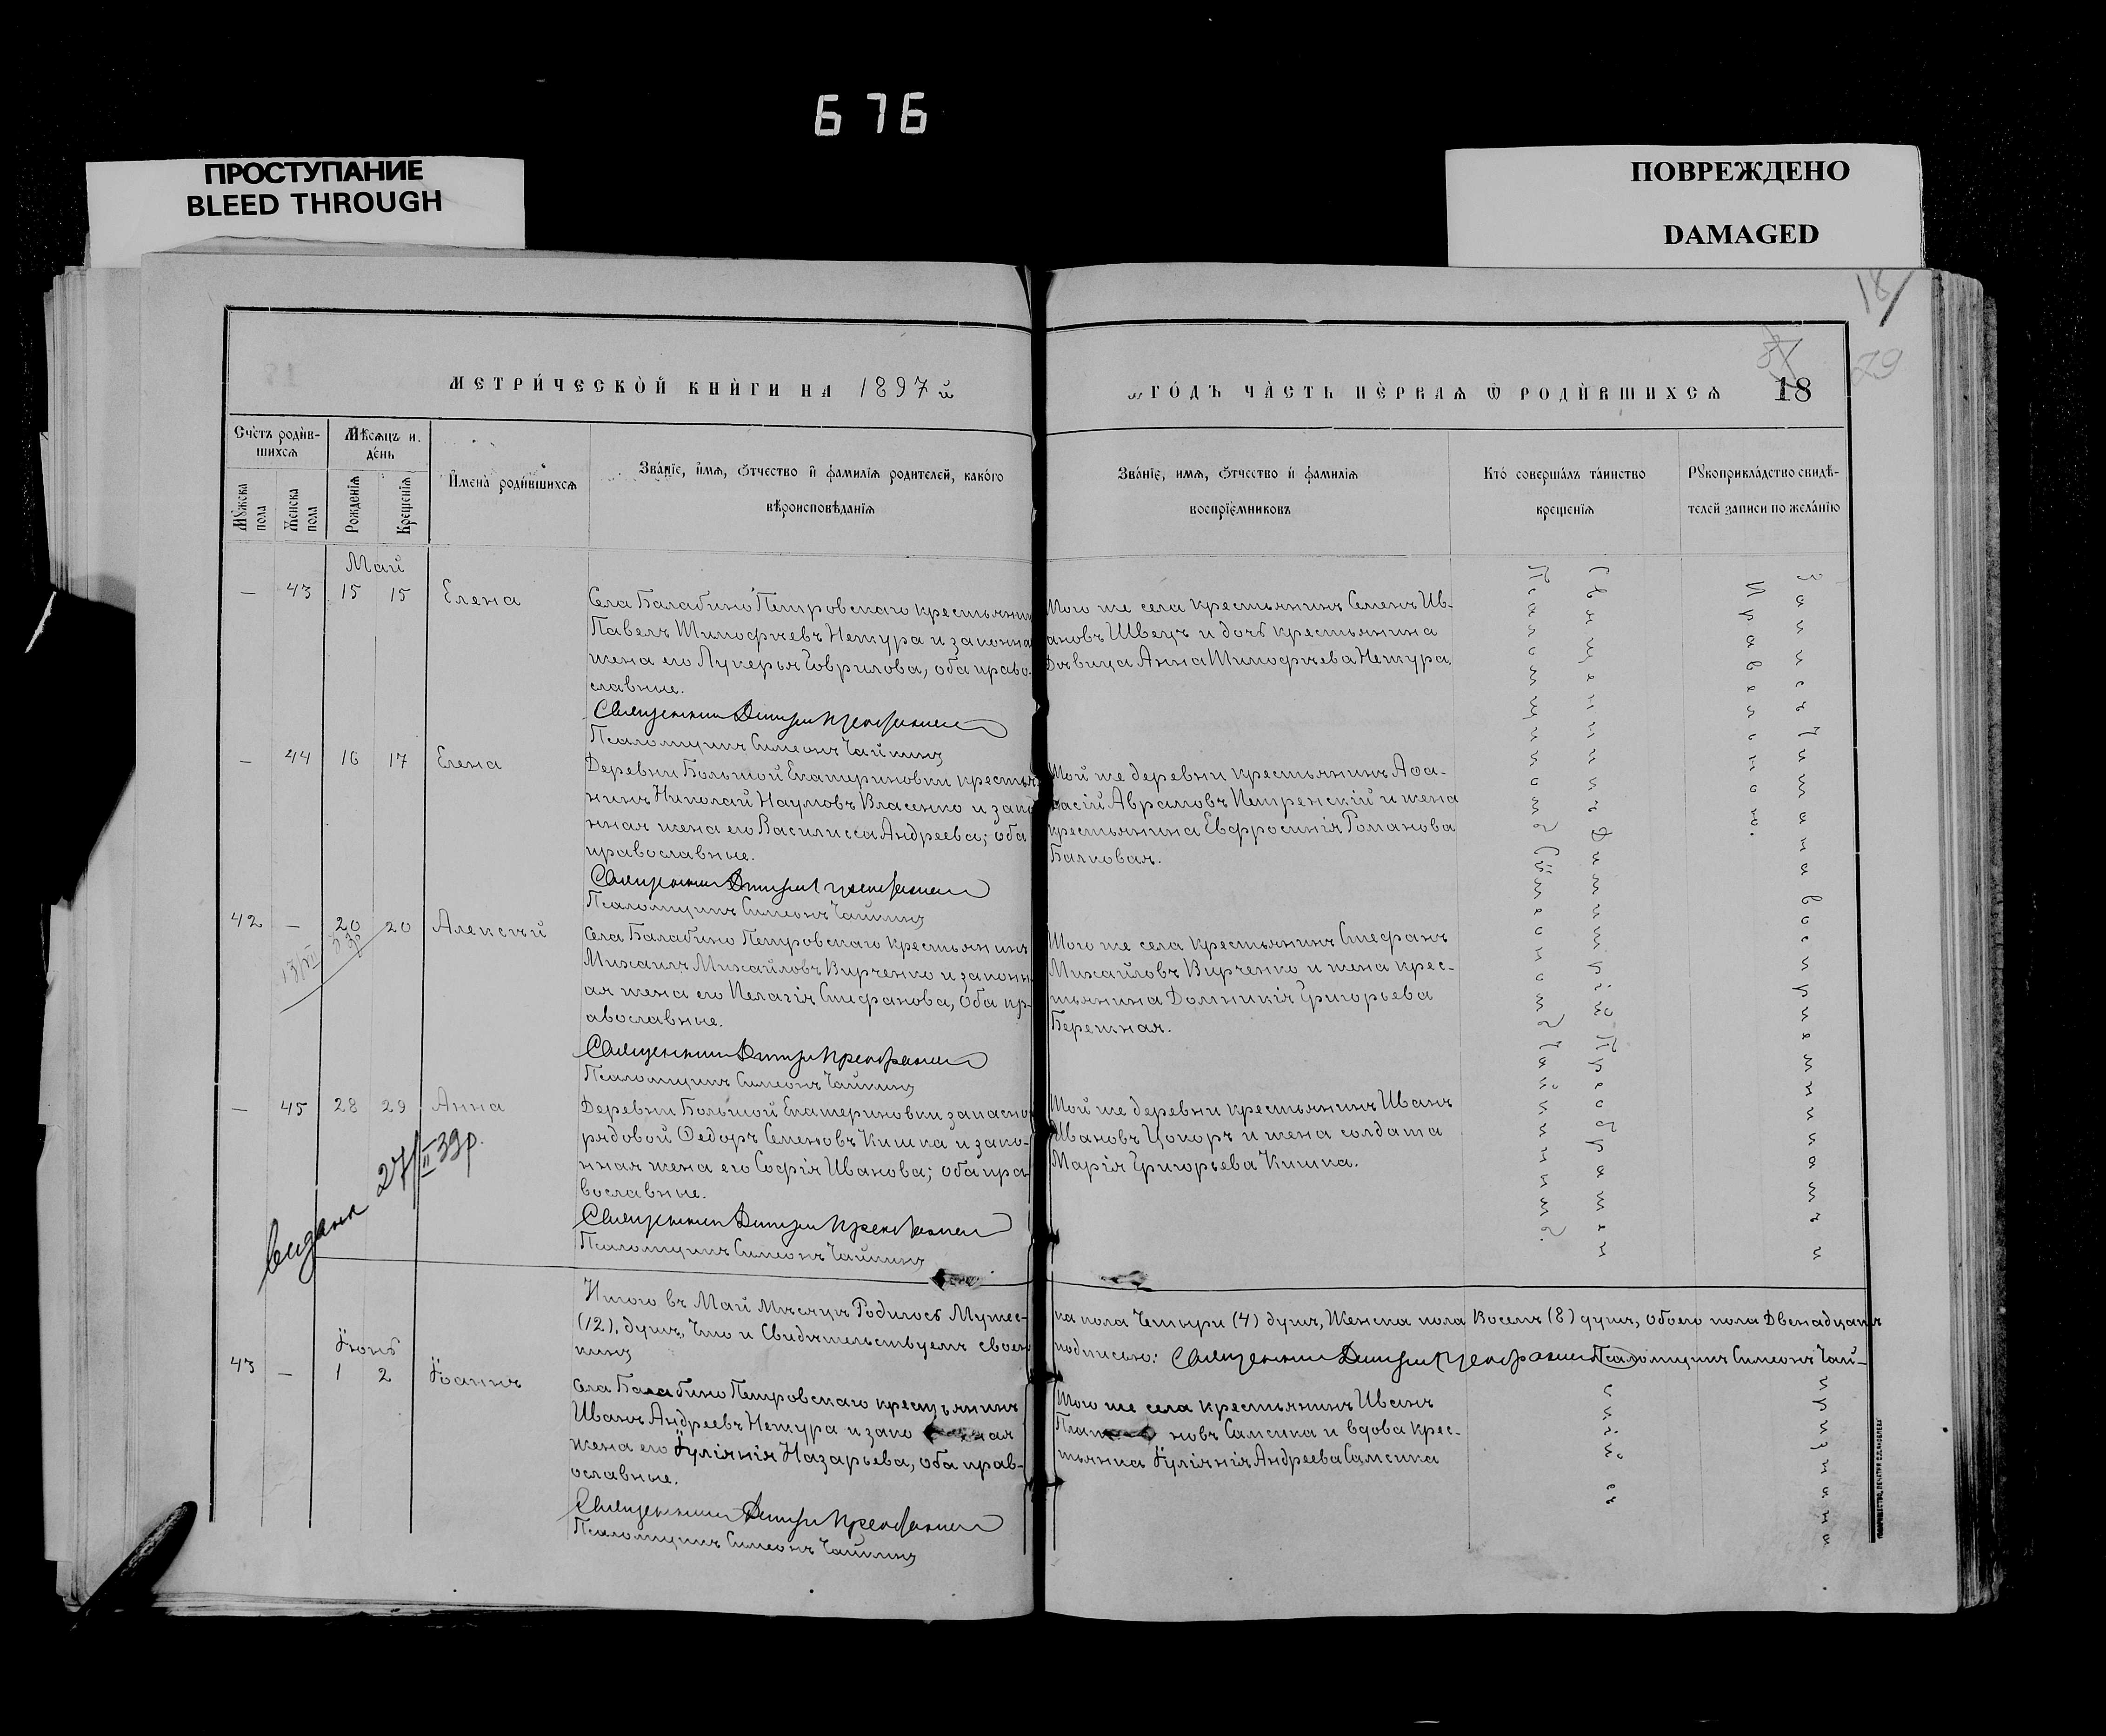 676
ПРОСТУПАНИЕ
BLEED THROUGH
ПОВРЕЖДЕНО
DAMAGED
18
29
МЕТРИ́ЧЕСКОЙ КНИ́ГИ НА 1897й
ГО́ДЪ ЧА́СТЬ ПЕ́РВАѦ Ѿ РОДИ́ВШИХСѦ 18
Сче́тъ роди́в-
шихсѧ
Мѣ́сѧцъ и
де́нь
Мꙋжска пола
Женска пола
Рожденїѧ
Крещенїѧ
И҆мена̀ роди́вшихсѧ
Зва́нїе, и҆мѧ, ѻ҆тчество и҆ фамилїѧ родителей, како́го
вѣроисповѣданїѧ
Зва́нїе, имѧ, ѻ҆тчество и҆ фамилїѧ
воспрїемниковъ
Кто́ соверша́лъ та́инство
крещенїѧ
Рꙋкоприкла́дство свидѣ-
телей записи по жела́нїю
Май
— 43 15 15 Елена
Села Балабино Петровскаго крестьянин
Павелъ Тимофѣевъ Нетура и законна
жена его Лукерья Говрилова, оба право-
славные.
Священникъ Димитрій Преображенскій
Псаломщикъ Симеонъ Чайкинъ
Того же села крестьянинъ Семенъ Ив-
ановъ Швецъ и дочь крестьянина
Дѣвица Анна Тимофѣева Нетура.
— 44 16 17 Елена
Деревни Большой Екатериновки крестья
нинъ Николай Наумовъ Власенко и зако
нная жена его Василисса Андреева; оба
православные.
Священникъ Димитрій Преображенскій
Псаломщикъ Симеонъ Чайкинъ
Той же деревни крестьянинъ Афа-
насій Аврамовъ Петренскій и жена
крестьянина Евфросинія Романова
Балковая.
42 — 20 20 Алексѣй
Села Балабино Петровскаго крестьянинъ
Михаилъ Михайловъ Вирченко и законн
ая жена его Пелагія Стефанова, оба пр-
авославные.
Священникъ Димитрій Преображенскій
Псаломщикъ Симеонъ Чайкинъ
Того же села крестьянинъ Стефанъ
Михайловъ Вирченко и жена крес-
тьянина Домникія Григорьева
Бережная.
— 45 28 29 Анна
видана 27/II 39р.
Деревни Большой Екатериновки запасно
рядовой Федоръ Семеновъ Кишка и зако-
нная жена его Софія Иванова; оба пра-
вославные.
Священникъ Димитрій Преображенскій
Псаломщикъ Симеонъ Чайкинъ
Той же деревни крестьянинъ Иванъ
Ивановъ Цокоръ и жена солдата
Марія Григорьева Кишка.
Псаломщикомъ Симеономъ Чайкинымъ.
Священникъ Димитрій Преображенскій съ
Правильною.
Запись Читана воспріемникамъ и признана
Итого въ Май мѣсяцѣ Родилось Мужес-
ка пола Четыри (4) душъ, Женска пола Восемъ (8) душъ, обоего пола Двенадцать
(12), душъ, Что и Свидѣтельствуемъ своею
подписью: Священникъ Димитрій Преображенскій Псаломщикъ Симеонъ Чай-
кинъ
Їюнь
43 — 1 2 Їоаннъ
Села Балабино Петровскаго крестьянинъ
Иванъ Андреевъ Нетура и зако ная
жена его Їуліянія Назарьева, оба прав-
ославные.
Священникъ Димитрій Преображенскій
Псаломщикъ Симеонъ Чайкинъ
Того же села крестьянинъ Иванъ
новъ Самсика и вдова крес-
тьянка Їуліянія Андреева Самсика